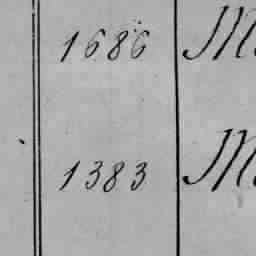 1686 M
1383 M